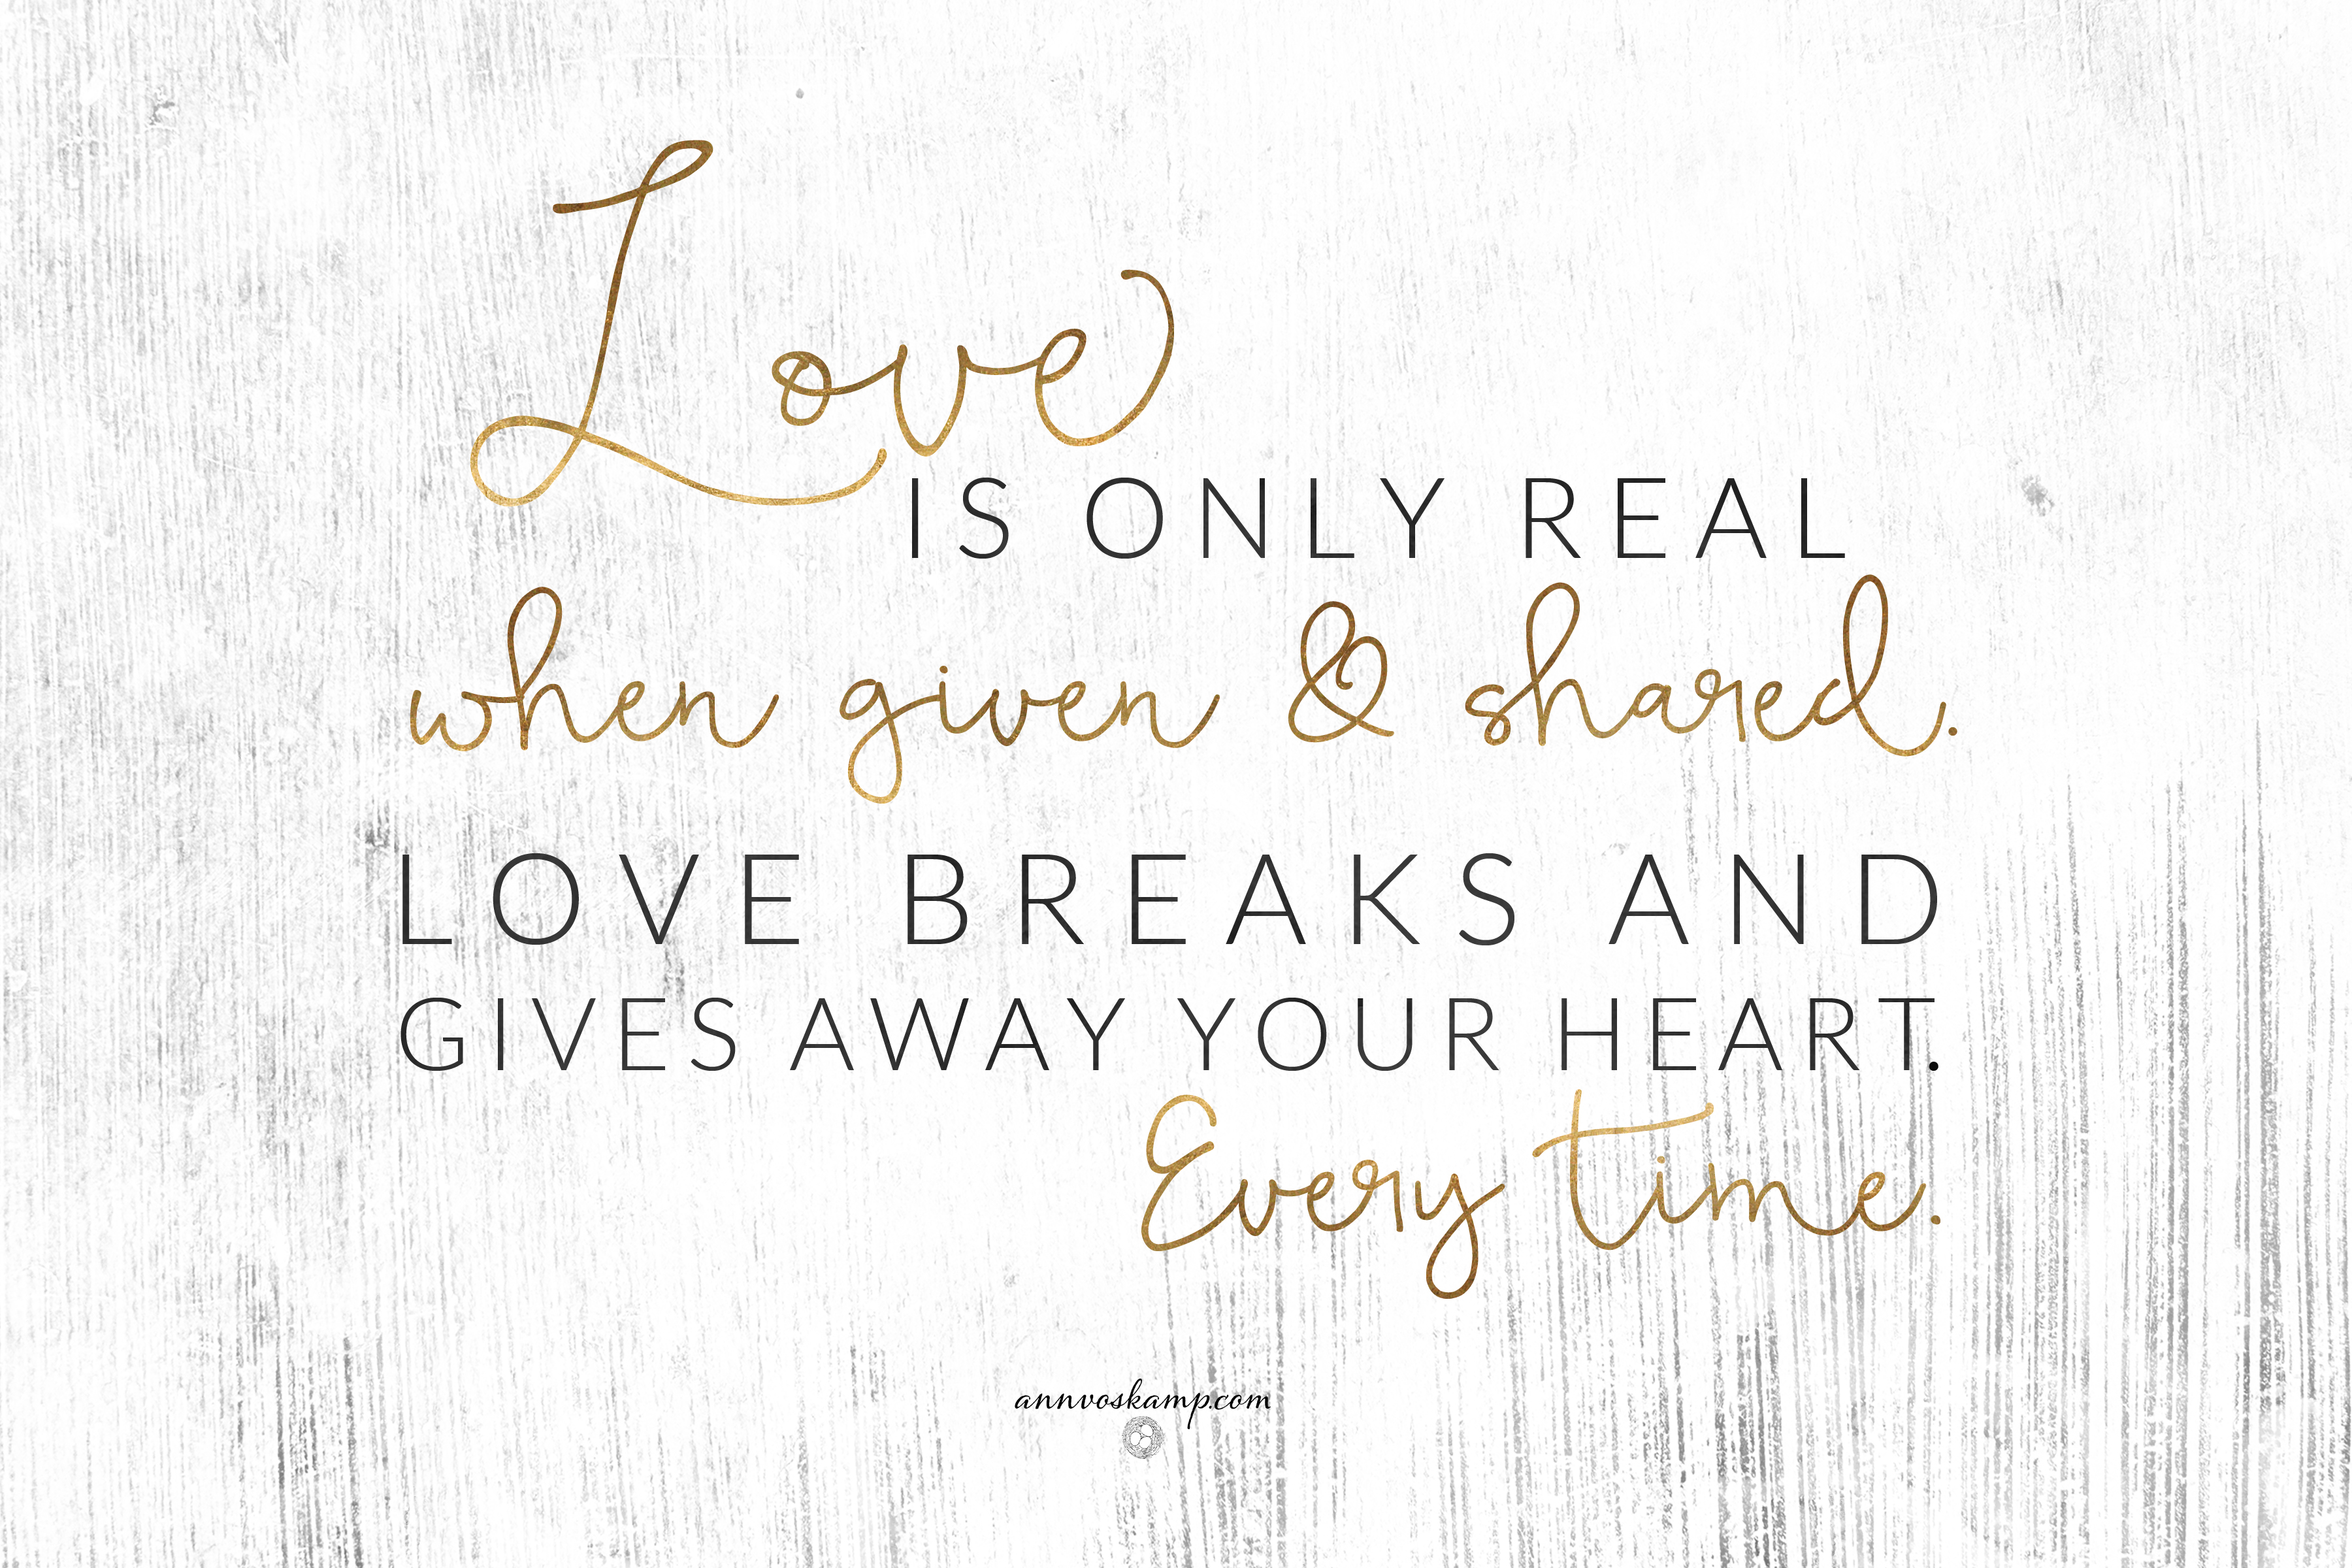 Love
IS ONLY REAL
when given & shared.
LOVE BREAKS AND
GIVES AWAY YOUR HEART.
Every time.
annvoskamp.com